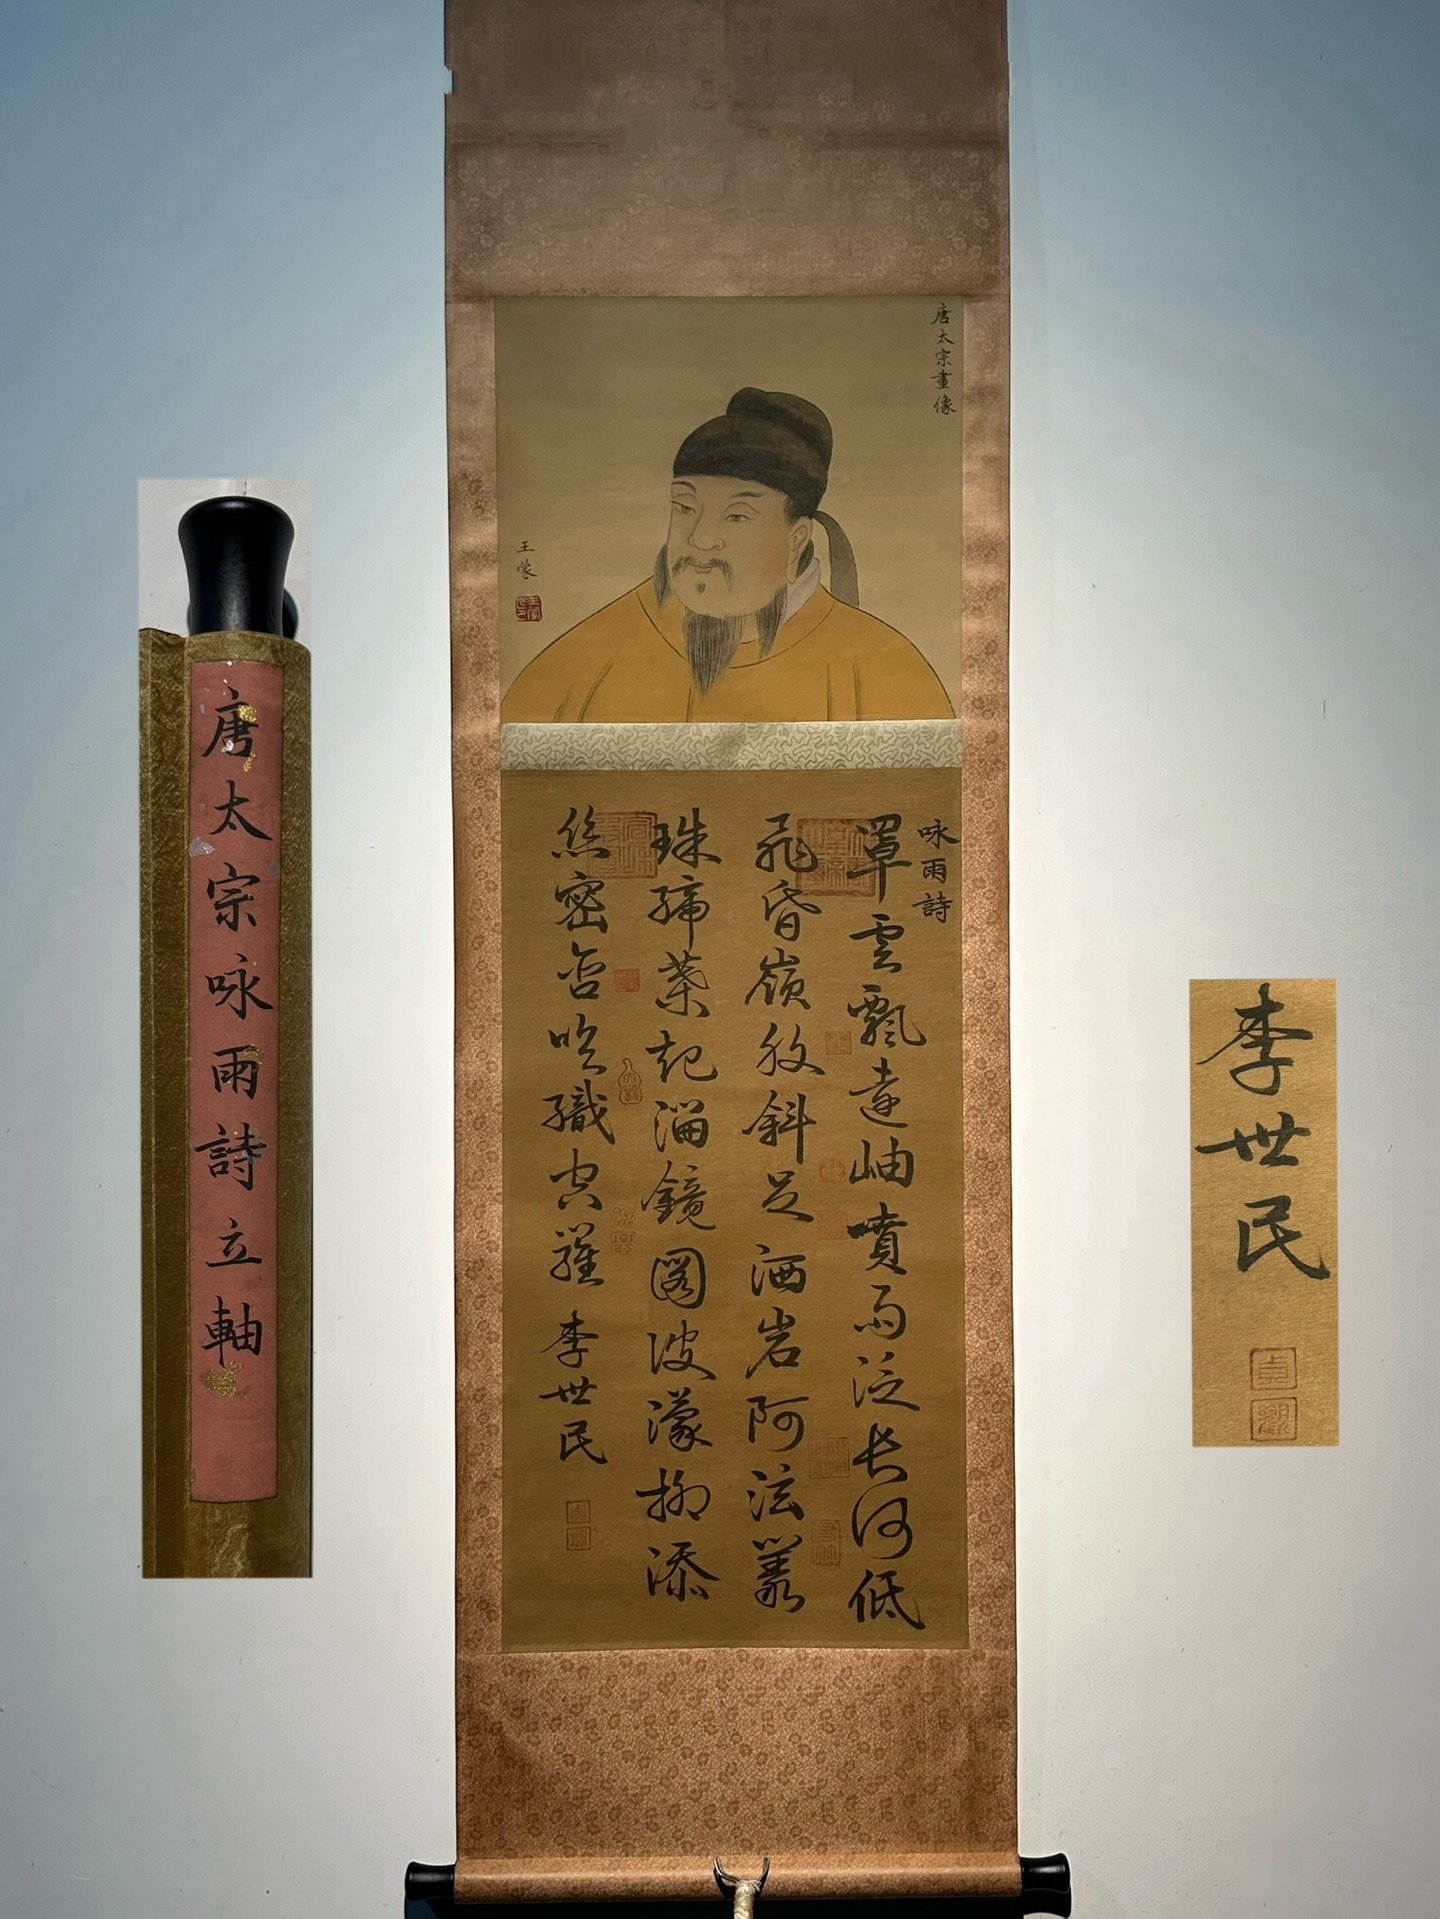 唐太宗畫像
王蒙
咏雨詩
罩雲飄遠岫噴雨泛長河低
飛昏嶺腹斜足洒岩阿泫叢
珠締葉起溜鏡圖波濛柳添
絲密含吹織空羅 李世民
貞觀
唐太宗咏雨詩立軸
李世民
貞觀